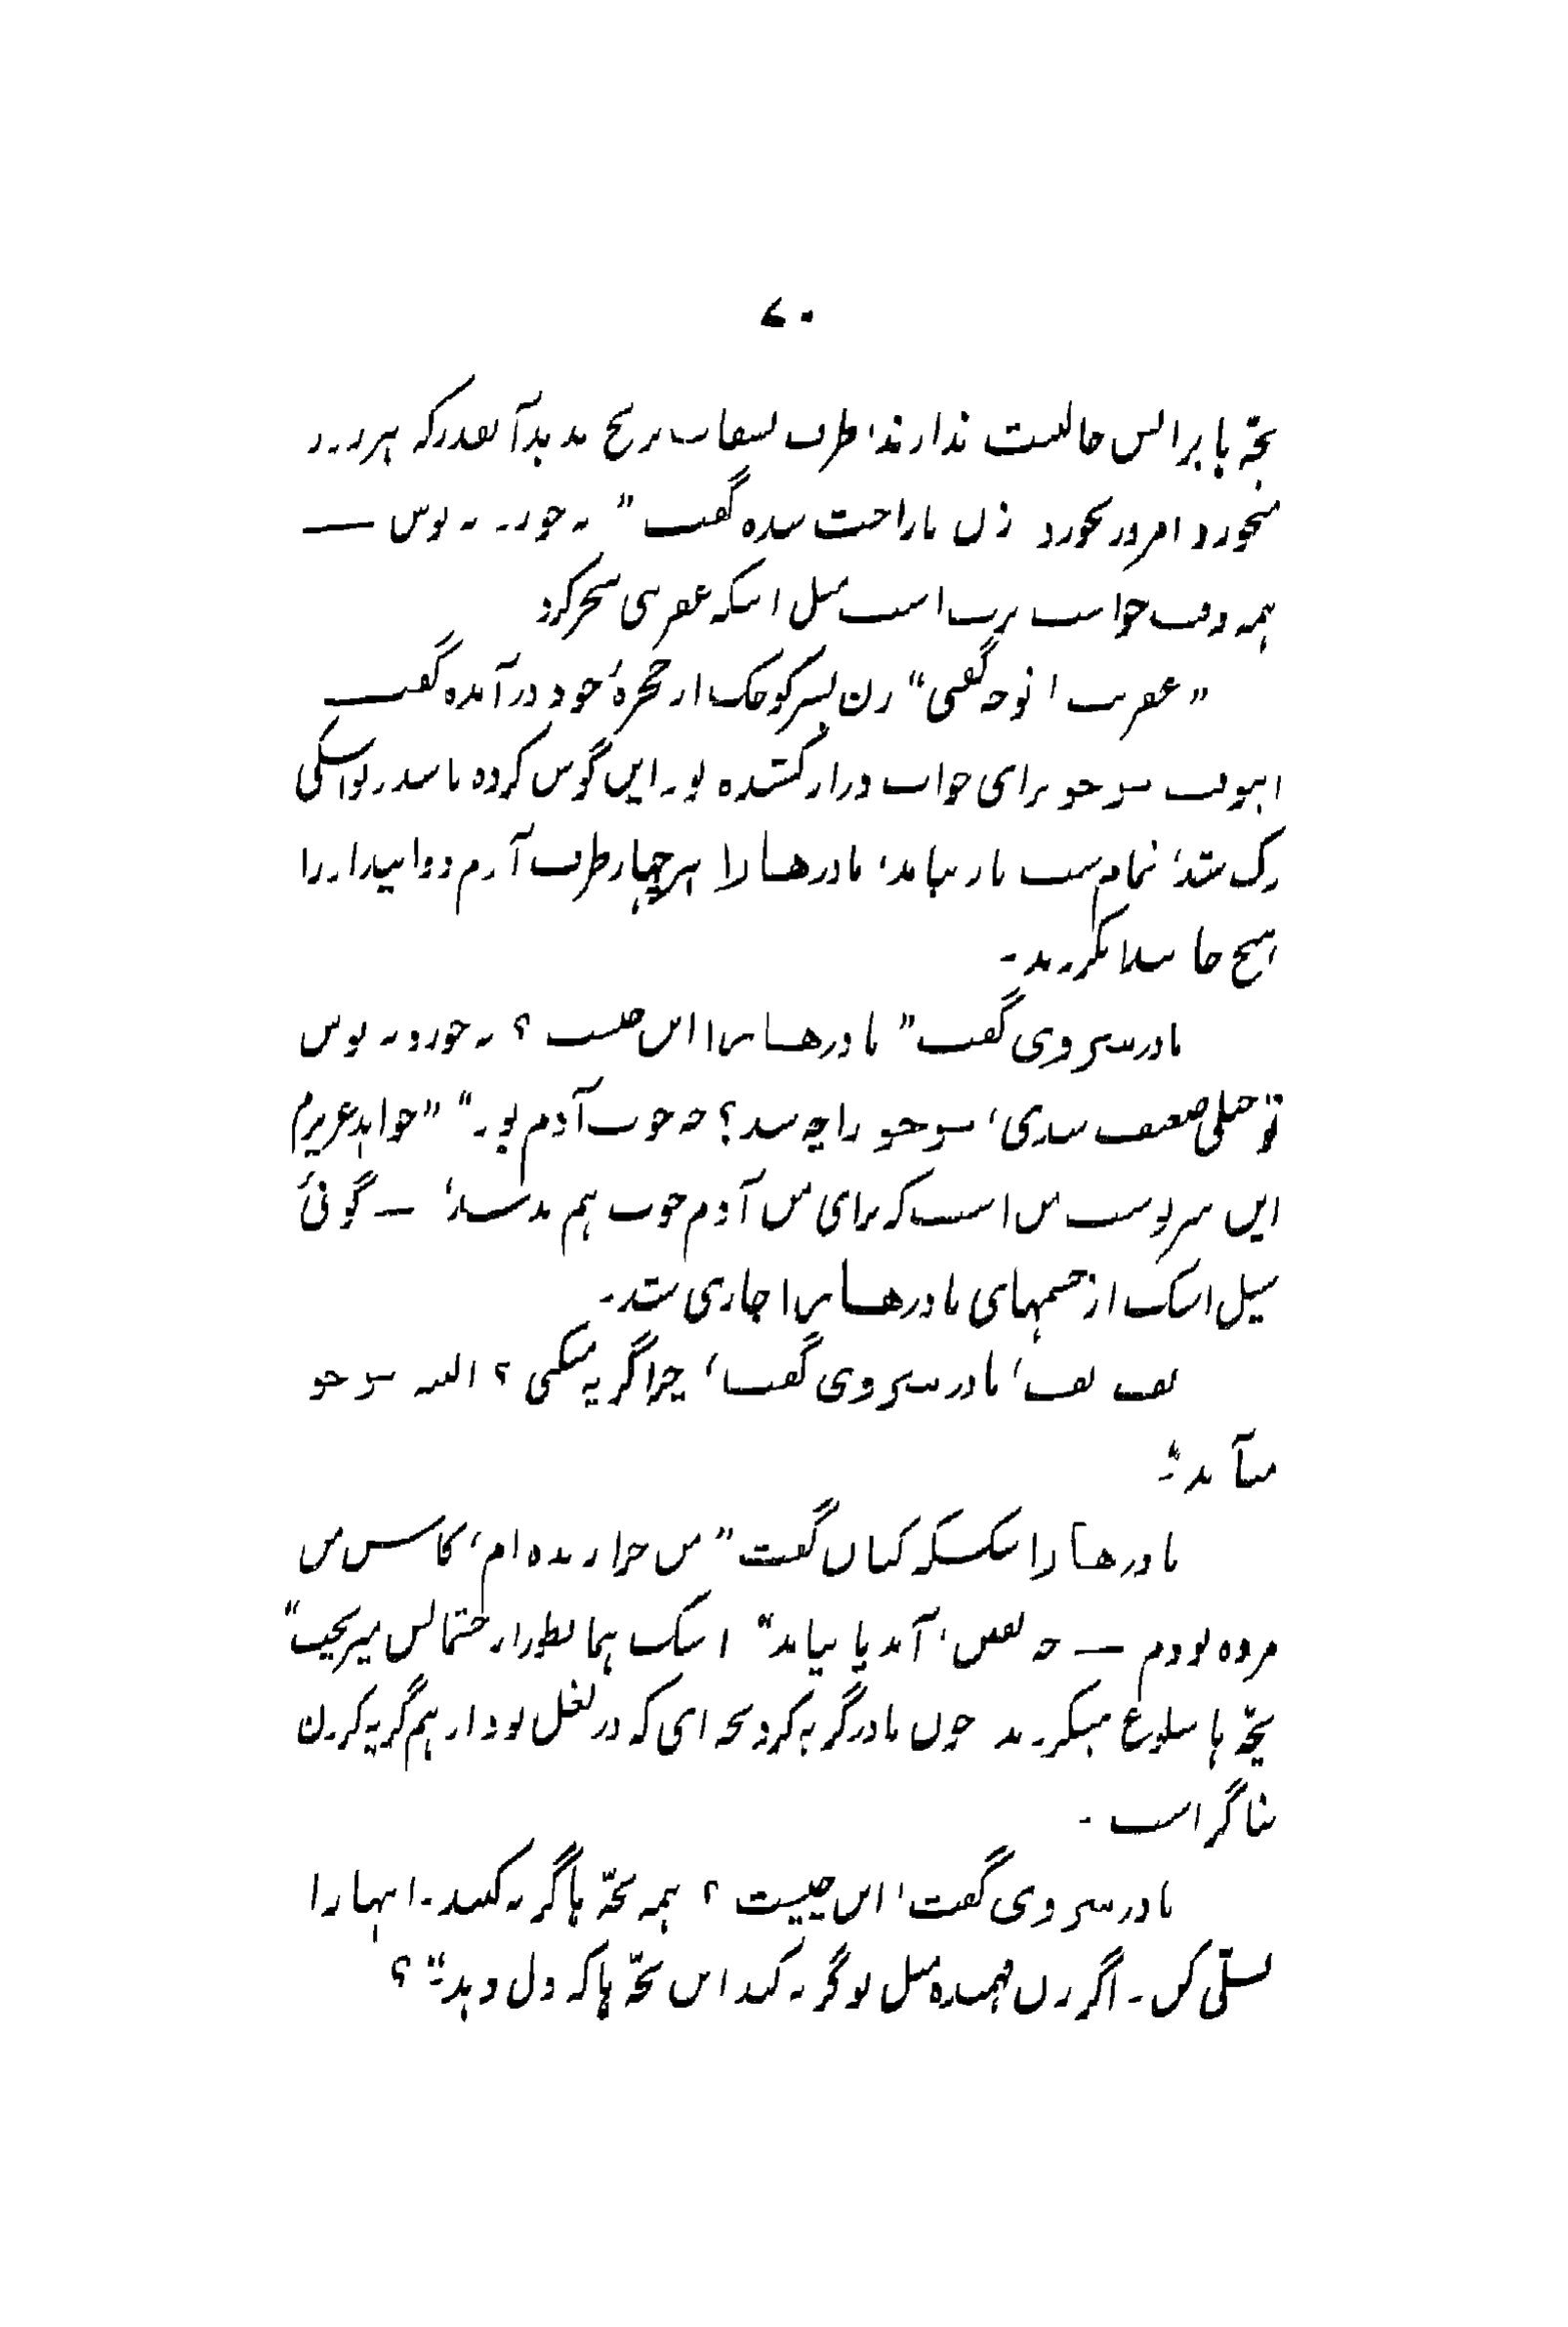 ۷۰
بچّه ها برایش حالیست ندارند، طرف بشقاب برنج بدبدآنقدرکه هرروز
میخورد امروز نخورد زن ناراحت شده گفت "نه خورد نه نوش —
همه وقت خواب پرت است مثل اینکه عفریتی سحر کرد
"عفریت! توچه گفتی" زن پسر کوچک از حجرهٔ خود درآمده گفت
اینوقت سوجو برای خواب دراز کشیده بود این گوش کرده پاشد یواشکی
رک شد، تمام شب باز نیامد، مادرهارا هرچهار طرف آدم دوانید اورا
هیچ جا پیدا نکردند۔
مادر سروی گفت "مادرهارا! این چیست ؟ نه خورد نه نوش
تو خیلی ضعیف شدی، سوجو را چه شد؟ چه خوب آدم بود۔" "خواهر عزیزم
این سرنوشت من است که برای من آدم خوب هم بدشد، — گوئی
سیل اشک از چشمهای مادرهارا جاری شد۔
تف تف، مادر سروی گفت، چرا گریه میکنی ؟ البته سوجو
میآید"۔
مادرهارا سکسکه کنان گفت "من چرا زنده ام، کاش من
مرده بودم — چه نقص، آمد یا نیامد" اشک همانطور از چشمانش میریخت"
بچّه ها شلوغ میکردند چون مادر گریه کرد بچه ای که در بغل بود او هم گریه کردن
بنا گراشت۔
مادر سروی گفت، این چیست ؟ همه بچّه ها گریه کنند۔ اینهارا
تسلّی کن۔ اگر زن فهمیده مثل تو گریه کند این بچّه ها که دل دهد"؟